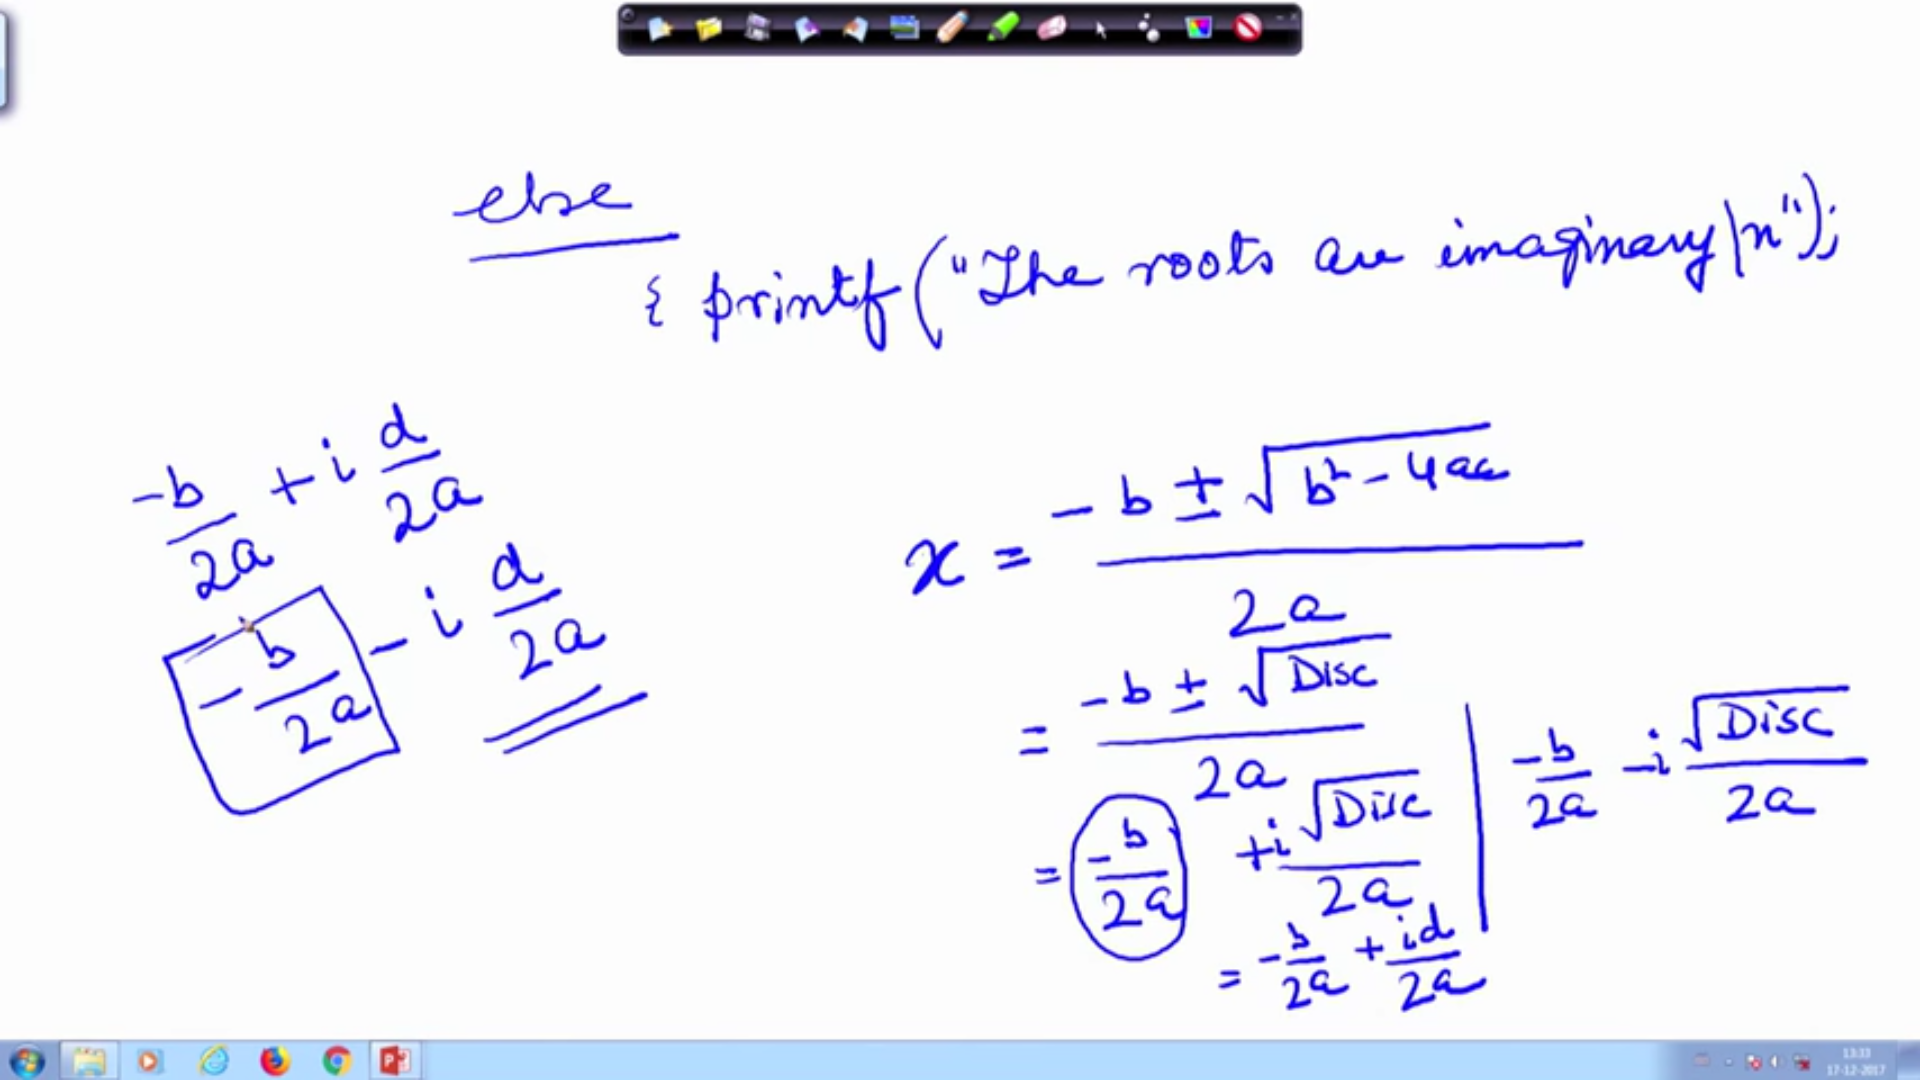 else
{ printf("The roots are imaginary\n");
-b/2a + i d/2a
-b/2a - i d/2a
x = -b ± √b² - 4ac / 2a
= -b ± √Disc / 2a
= -b/2a + i √Disc/2a | -b/2a - i √Disc/2a
= -b/2a + id/2a
13:33
17-12-2017